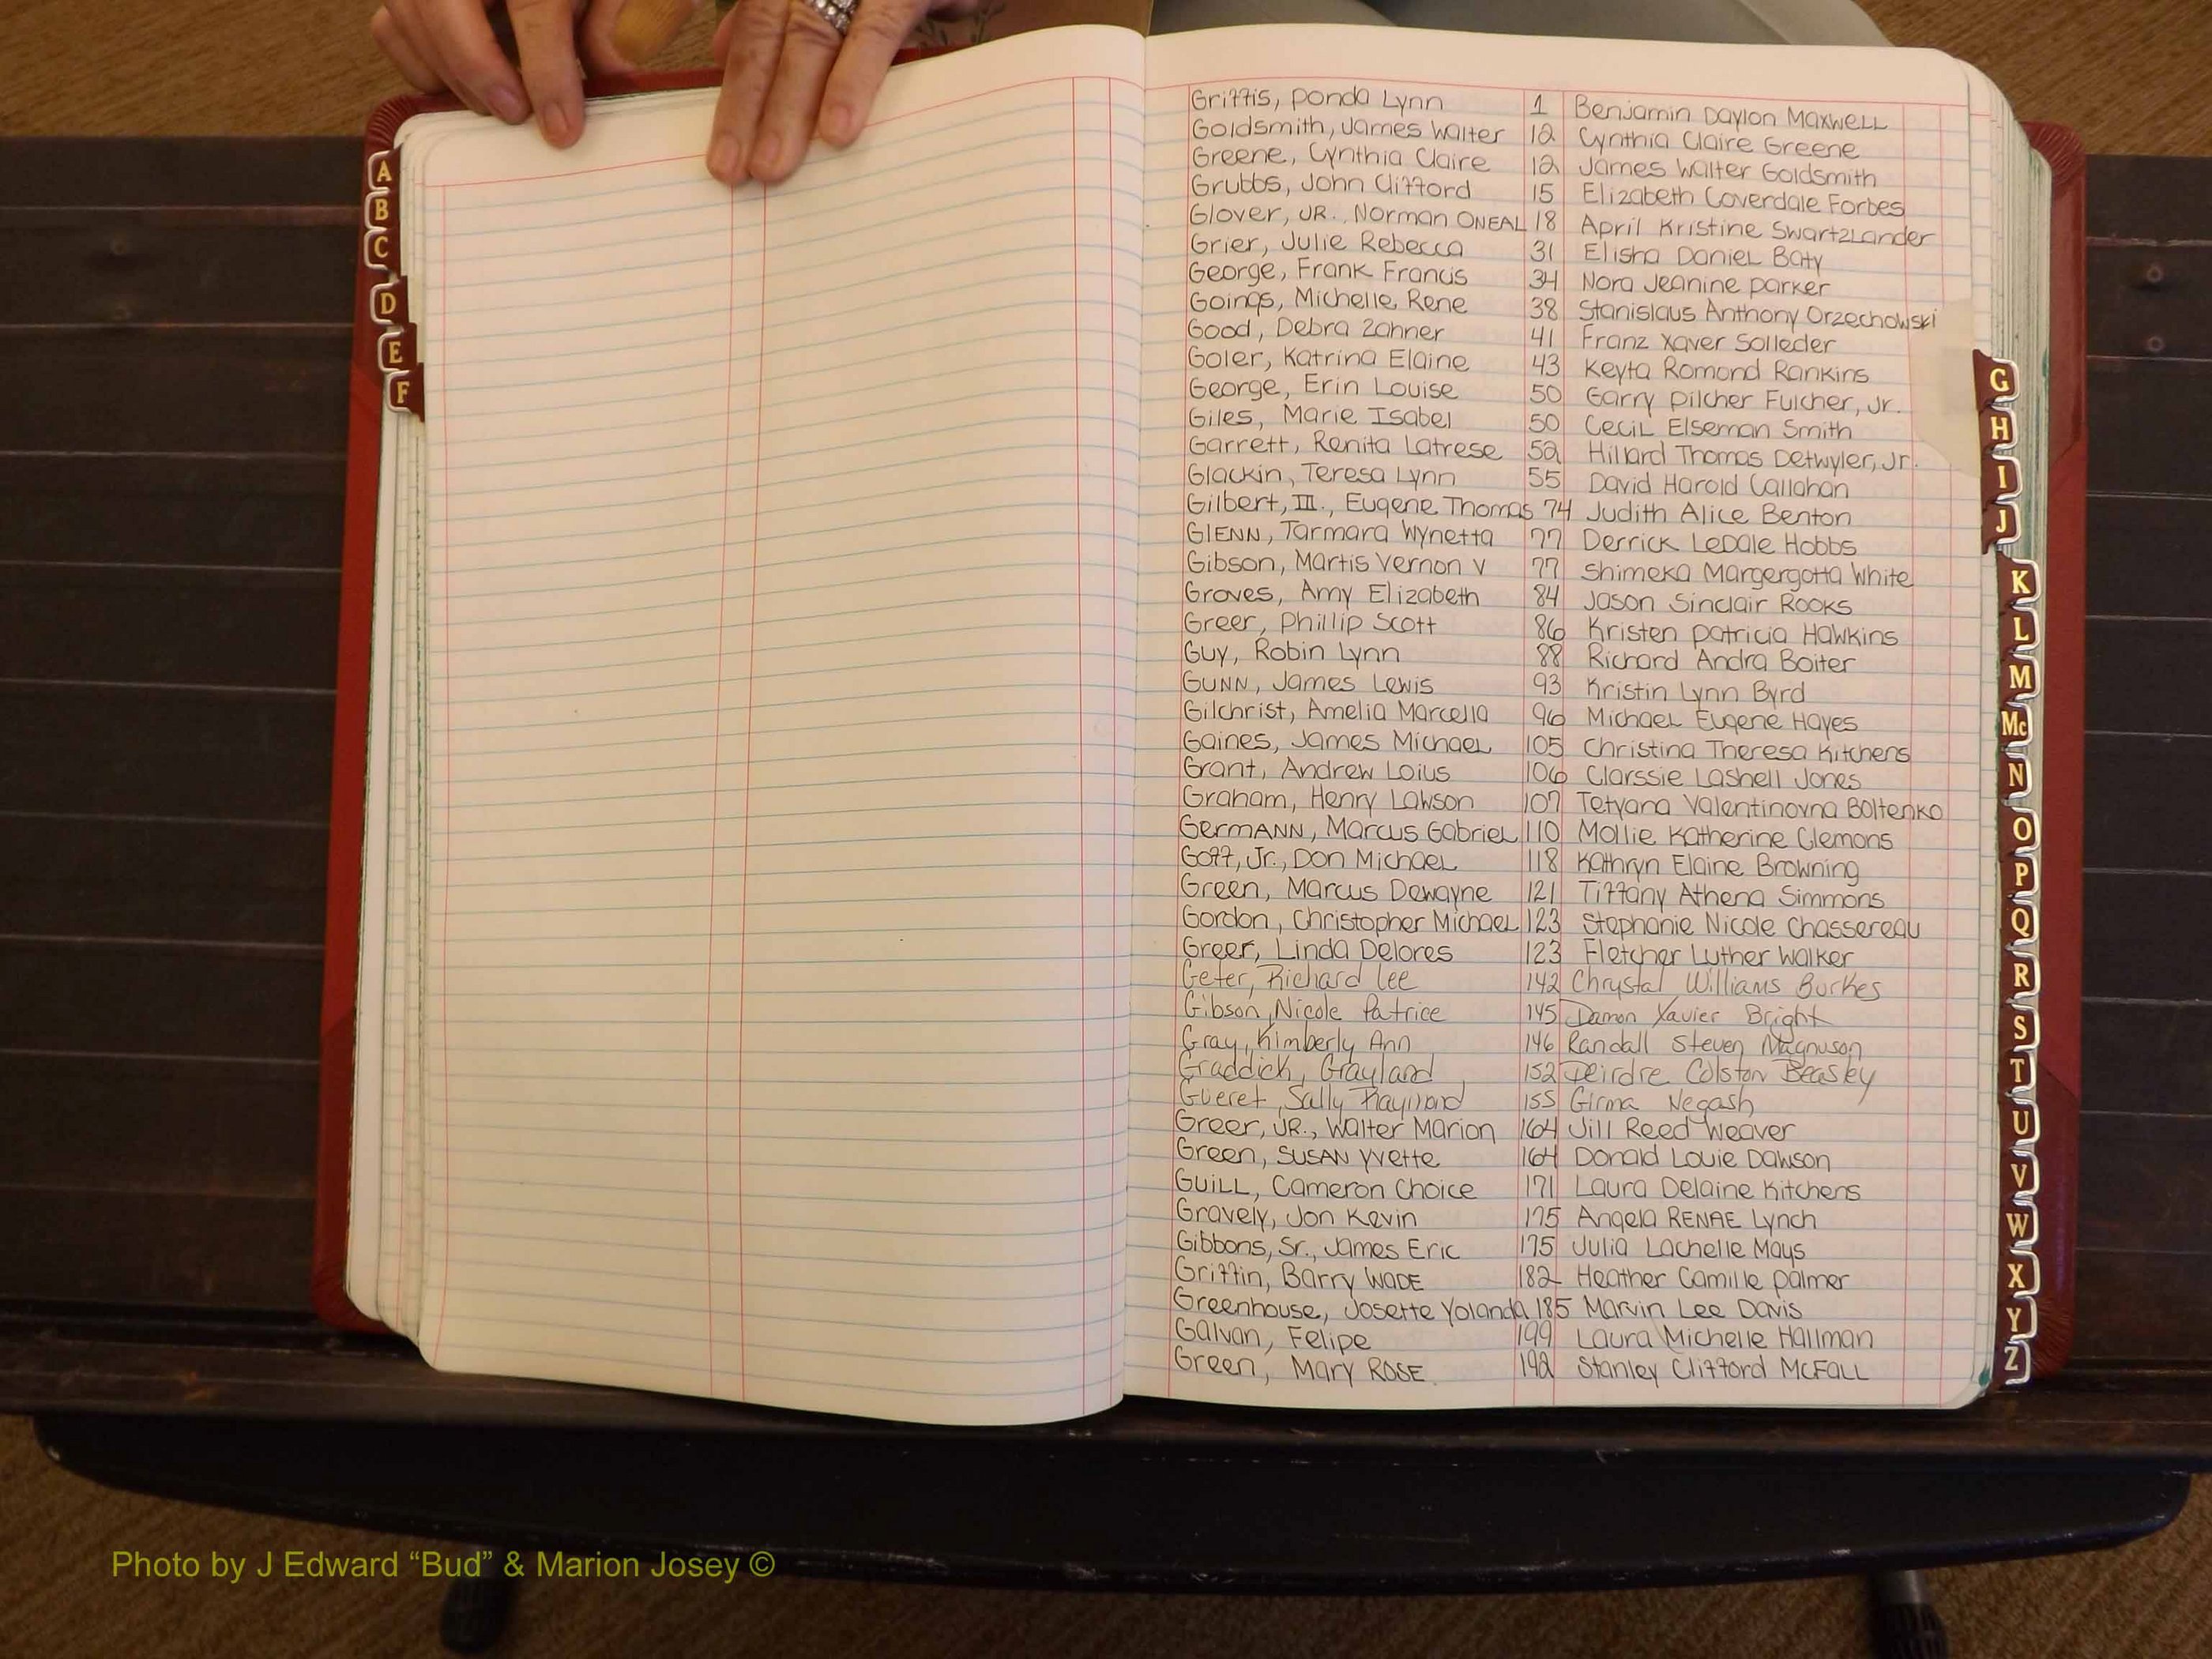 A
B
C
D
E
F
Griffis, Ponda Lynn 1 Benjamin Daylon Maxwell
Goldsmith, James Walter 12 Cynthia Claire Greene
Greene, Cynthia Claire 12 James Walter Goldsmith
Grubbs, John Clifford 15 Elizabeth Coverdale Forbes
Glover, JR., Norman ONEAL 18 April Kristine Swartzlander
Grier, Julie Rebecca 31 Elisha Daniel Baty
George, Frank Francis 34 Nora Jeanine Parker
Goings, Michelle Rene 38 Stanislaus Anthony Orzechowski
Good, Debra Zahner 41 Franz Xaver Solleder
Goler, Katrina Elaine 43 Keyta Romond Rankins
George, Erin Louise 50 Garry Pilcher Fulcher, Jr.
Giles, Marie Isabel 50 Cecil Elseman Smith
Garrett, Renita Latrese 52 Hillard Thomas Detwyler, Jr.
Glackin, Teresa Lynn 55 David Harold Callahan
Gilbert, III., Eugene Thomas 74 Judith Alice Benton
GlENN, Tarmara Wynetta 77 Derrick LeDale Hobbs
Gibson, Martis Vernon V 77 Shimeka Margergotta White
Groves, Amy Elizabeth 84 Jason Sinclair Rooks
Greer, Phillip Scott 86 Kristen Patricia Hawkins
Guy, Robin Lynn 88 Richard Andra Boiter
GUNN, James Lewis 93 Kristin Lynn Byrd
Gilchrist, Amelia Marcella 96 Michael Eugene Hayes
Gaines, James Michael 105 Christina Theresa Kitchens
Grant, Andrew Loius 106 Clarssie Lashell Jones
Graham, Henry Lawson 107 Tetyana Valentinovna Boltenko
GermANN, Marcus Gabriel 110 Mollie Katherine Clemons
Goff, Jr., Don Michael 118 Kathryn Elaine Browning
Green, Marcus Dewayne 121 Tiffany Athena Simmons
Gordon, Christopher Michael 123 Stephanie Nicole Chassereau
Greer, Linda Delores 123 Fletcher Luther Walker
Geter, Richard Lee 142 Chrystal Williams Burkes
Gibson, Nicole Patrice 145 Damon Xavier Bright
Gray, Kimberly Ann 146 Randall Steven Magnuson
Graddick, Grayland 152 Deirdre Colston Beasley
Gueret, Sally Raymond 155 Girma Negash
Greer, JR., Walter Marion 164 Jill Reed Weaver
Green, SUSAN Yvette 164 Donald Louie Dawson
GUILL, Cameron Choice 171 Laura Delaine Kitchens
Gravely, Jon Kevin 175 Angela RENAE Lynch
Gibbons, Sr., James Eric 175 Julia Lachelle Mays
Griffin, Barry WADE 182 Heather Camille Palmer
Greenhouse, Josette Yolanda 185 Marvin Lee Davis
Galvan, Felipe 199 Laura Michelle Hallman
Green, Mary ROSE 192 Stanley Clifford McFall
G
H
I
J
K
L
M
Mc
N
O
P
Q
R
S
T
U
V
W
X
Y
Z
Photo by J Edward “Bud” & Marion Josey ©